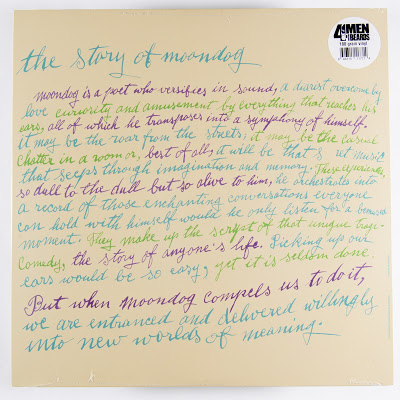 4 MEN
WITH BEARDS
180 gram vinyl
the story of moondog
Moondog is a poet who versifies in sound, a diarist overcome by
love curiosity and amusement by everything that reaches his
ears, all of which he transposes into a symphony of himself.
it may be the roar from the streets; it may be the casual
chatter in a room or, best of all, it will be that music
that seeps through imagination and memory. These experiences,
so dull to the dull but so alive to him, he orchestrates into
a record of those enchanting conversations everyone
can hold with himself would he only listen for a
moment. They make up the script of that unique trage-
comedy, the story of anyone's life. Picking up our
ears would be so easy, yet it is seldom done.
But when Moondog compels us to do it,
we are entranced and delivered willingly
into new worlds of meaning.